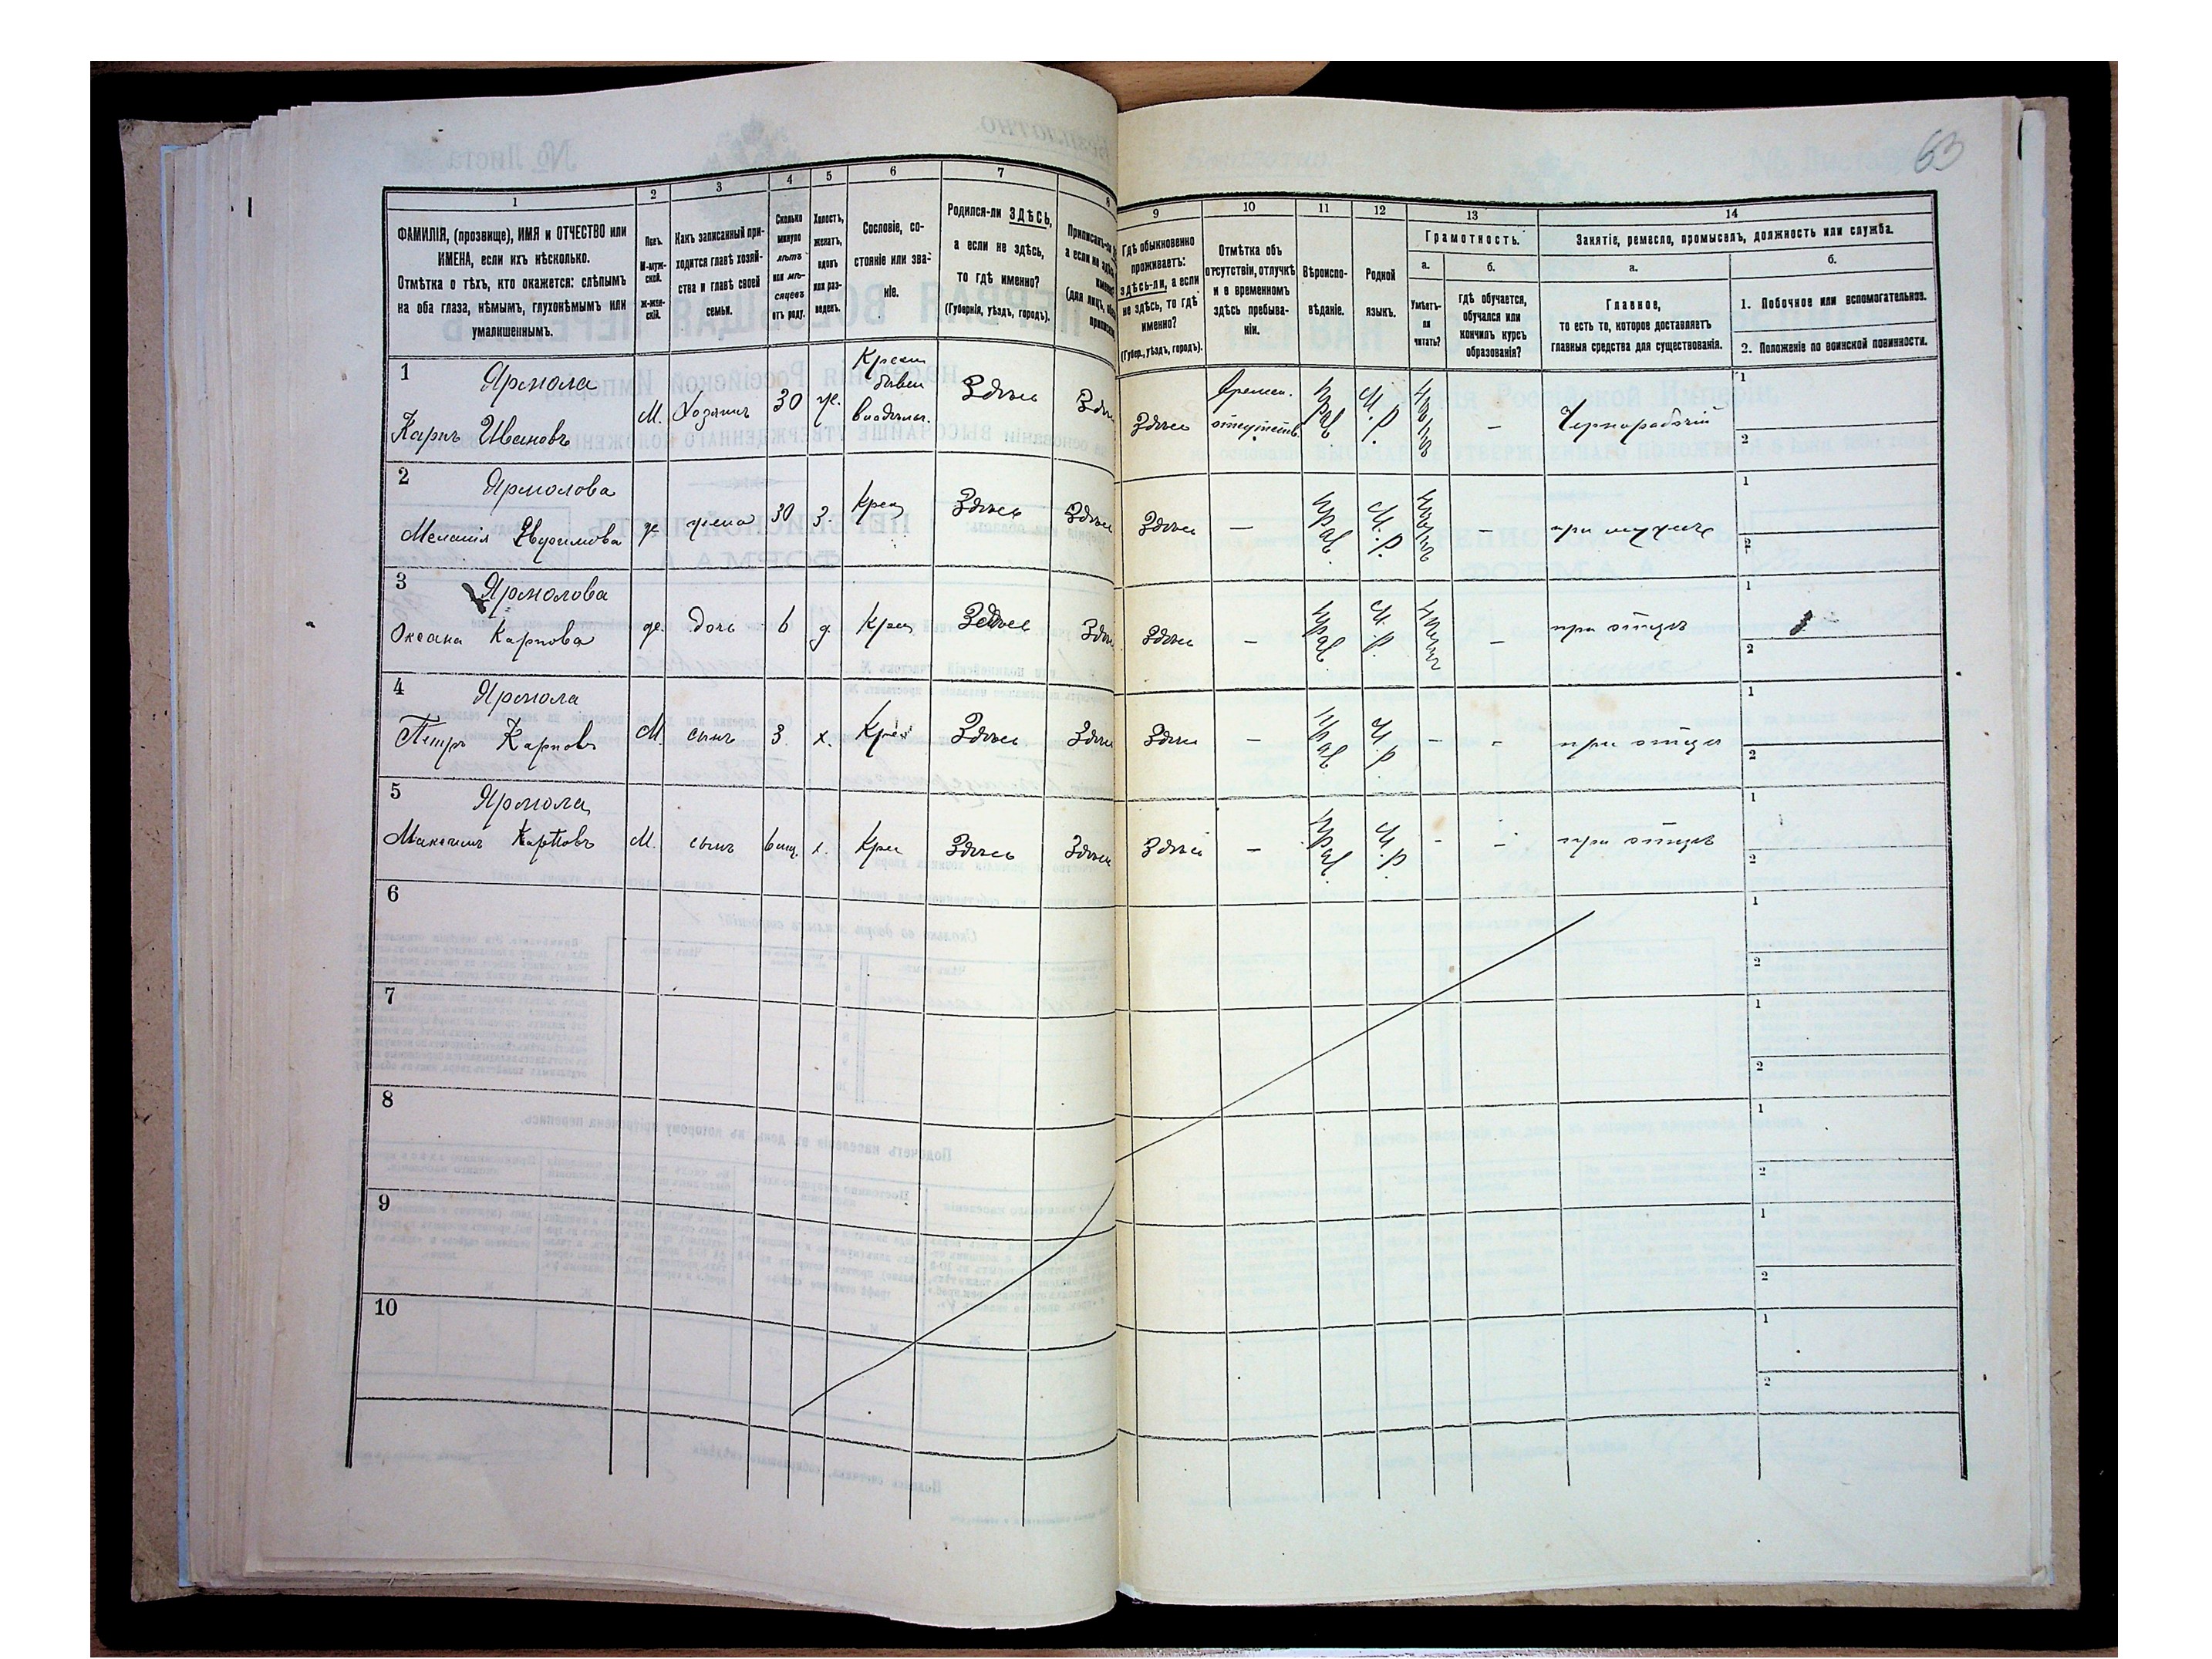 63
1
2
3
4
5
6
7
8
9
10
11
12
13
14
ФАМИЛІЯ, (прозвище), ИМЯ и ОТЧЕСТВО или
ИМЕНА, если ихъ нѣсколько.
Отмѣтка о тѣхъ, кто окажется: слѣпымъ
на оба глаза, нѣмымъ, глухонѣмымъ или
умалишеннымъ.
Полъ.
М-муж-
ской.
ж-жен-
скій.
Какъ записанный при-
ходится главѣ хозяй-
ства и главѣ своей
семьи.
Сколько
минуло
лѣтъ
или мѣ-
сяцевъ
отъ роду.
Холостъ,
женатъ,
вдовъ
или раз-
веденъ.
Сословіе, со-
стояніе или зва-
ніе.
Родился-ли ЗДѢСЬ,
а если не здѣсь,
то гдѣ именно?
(Губернія, уѣздъ, городъ).
Гдѣ обыкновенно
проживаетъ:
здѣсь-ли, а если
не здѣсь, то гдѣ
именно?
(Губер., уѣздъ, городъ).
Отмѣтка объ
отсутствіи, отлучкѣ
и о временномъ
здѣсь пребыва-
ніи.
Вѣроиспо-
вѣданіе.
Родной
языкъ.
Грамотность.
а.
б.
Умѣетъ-
ли
читать?
гдѣ обучается,
обучался или
кончилъ курсъ
образованія?
Занятіе, ремесло, промыселъ, должность или служба.
а.
б.
Главное,
то есть то, которое доставляетъ
главныя средства для существованія.
1. Побочное или вспомогательное.
2. Положеніе по воинской повинности.
1 Ярмола
Карпъ Ивановъ
М. Хозяинъ 30 ж.
Крест
бывш
владѣльч.
Здѣсь Здѣсь Здѣсь
Времен.
отсутств.
Прав. М.р. –
Чернорабочій
1
2
2 Ярмолова
Меланія Евдокимова ж. жена 30 З. Крест Здѣсь Здѣсь Здѣсь – Прав. М.р. – при мужѣ
1
2
3 Ярмолова
Оксана Карпова ж. дочь 6 д. Крест Здѣсь Здѣсь Здѣсь – Прав. М.р. – при отцѣ
1
2
4 Ярмола
Петръ Карповъ М. сынъ 3 х. Крес Здѣсь Здѣсь Здѣсь – Прав М.р – - при отцѣ
1
2
5 Ярмола
Максимъ Карповъ М. сынъ 6 мц. х. Крес Здѣсь Здѣсь Здѣсь – Прав. М.р. - - при отцѣ
1
2
6
1
2
7
1
2
8
1
2
9
1
2
10
1
2